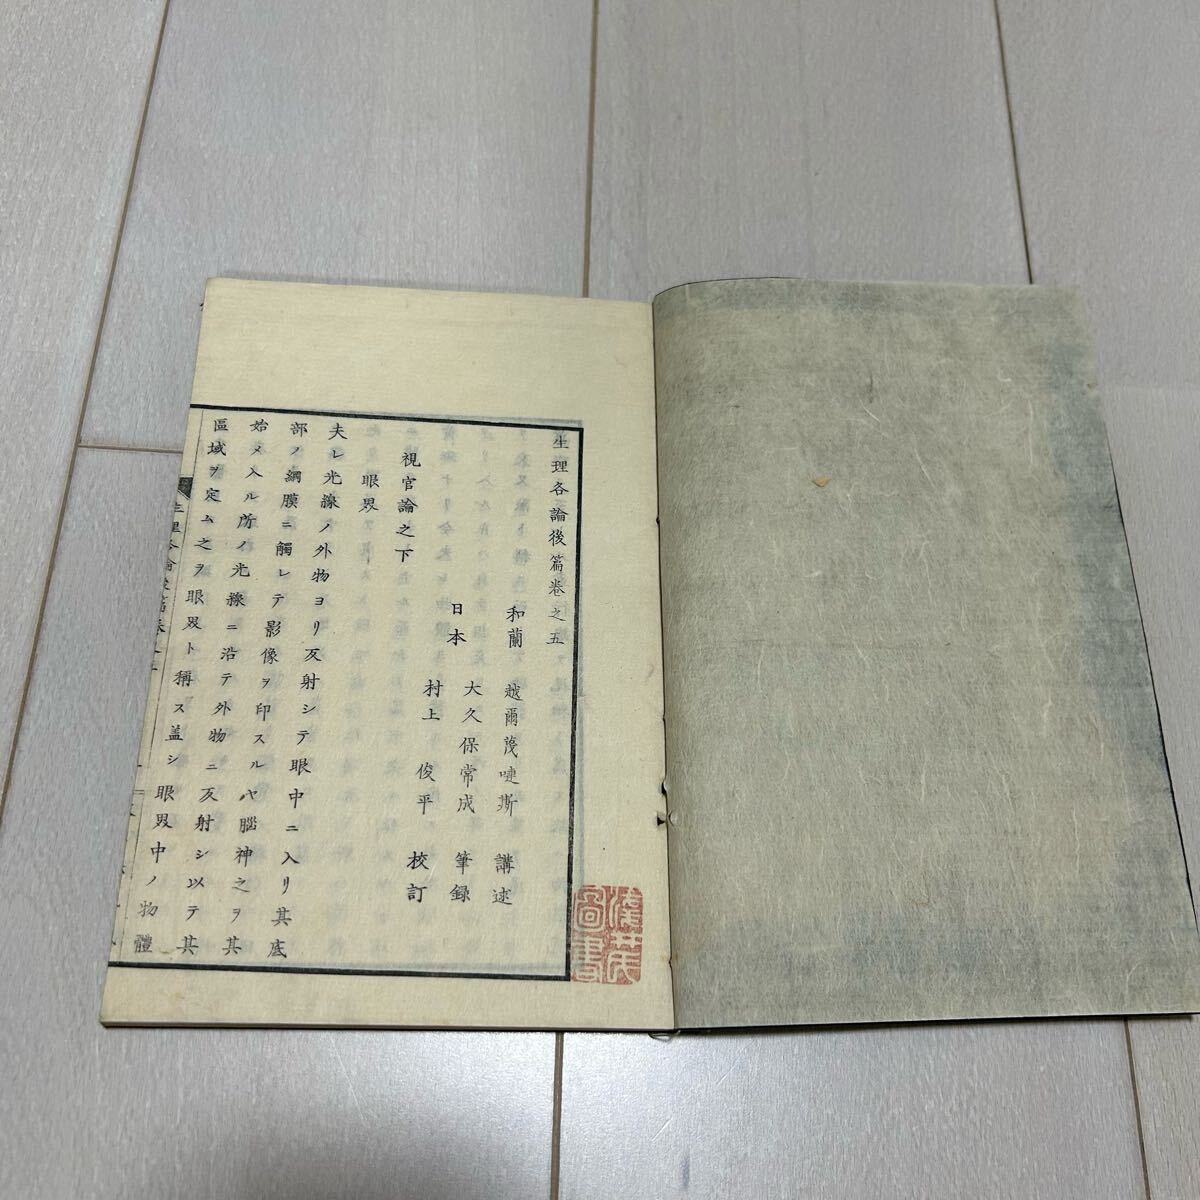 生理各論後篇卷之五
和蘭 越爾蔑噠斯 講述
日本 大久保常成 筆録
村上俊平 校訂
視官論之下
眼界
夫レ光線ノ外物ヨリ反射シテ眼中ニ入リ其底
部ノ網膜ニ觸レテ影像ヲ印スルヤ腦神之ヲ其
始メ入ル所ノ光線ニ沿テ外物ニ反射シ以テ其
區域ヲ定ム之ヲ眼界ト稱ス盖シ眼界中ノ物體
生理各論後篇卷之五
淺井圖書